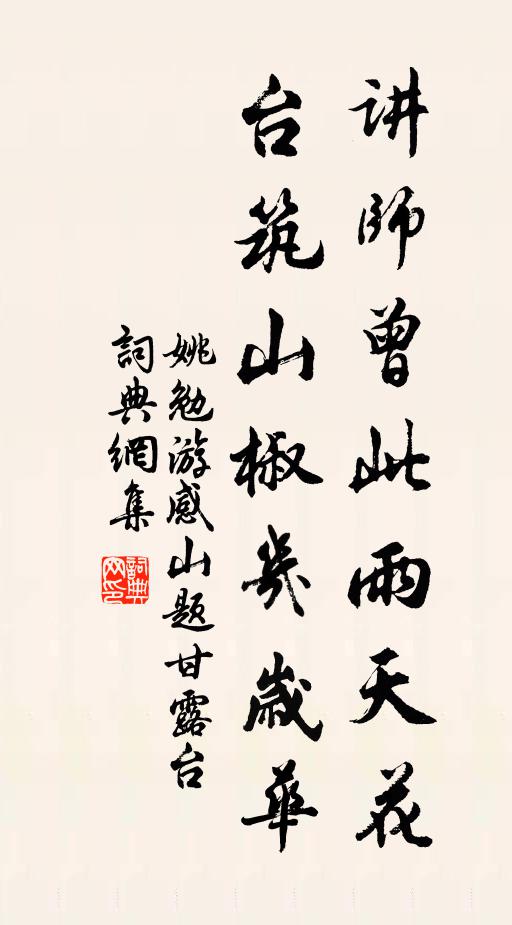 讲師曾此雨天花
台筑山椒幾歲華
姚勉游感山题甘露台
詞典網集
詞典网印